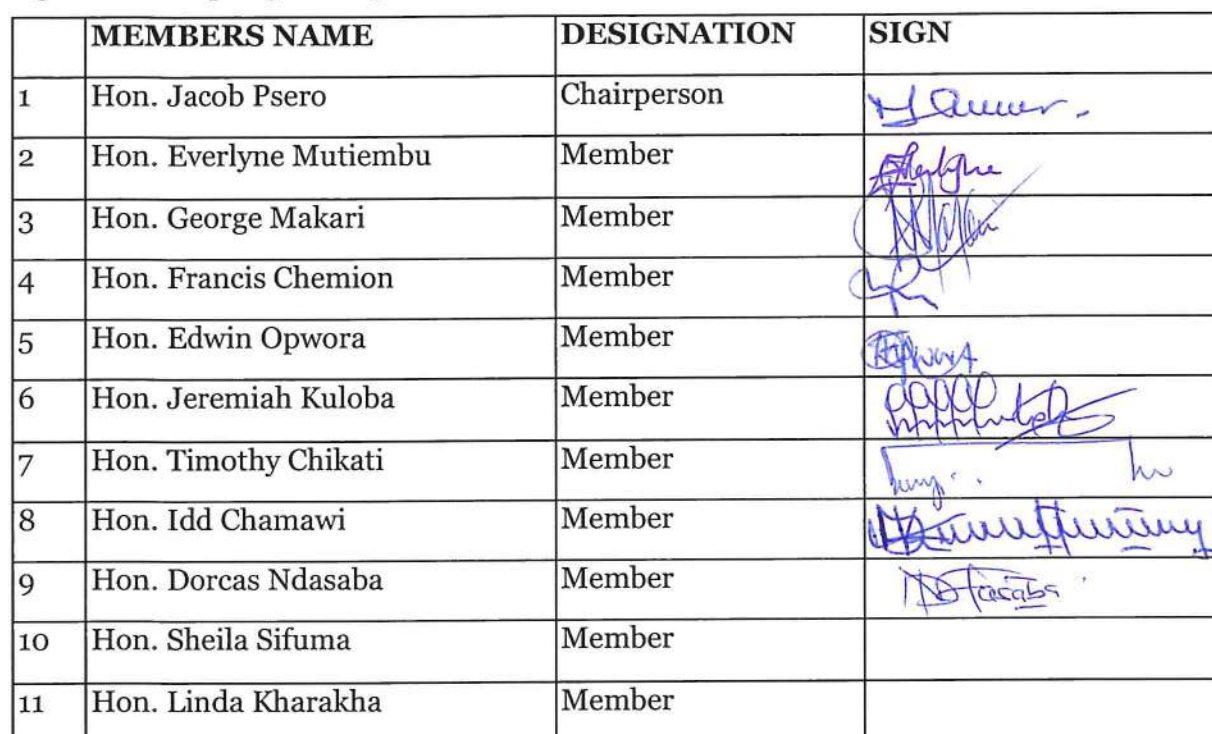 MEMBERS NAME DESIGNATION SIGN
1 Hon. Jacob Psero Chairperson
2 Hon. Everlyne Mutiembu Member
3 Hon. George Makari Member
4 Hon. Francis Chemion Member
5 Hon. Edwin Opwora Member
6 Hon. Jeremiah Kuloba Member
7 Hon. Timothy Chikati Member
8 Hon. Idd Chamawi Member
9 Hon. Dorcas Ndasaba Member
10 Hon. Sheila Sifuma Member
11 Hon. Linda Kharakha Member